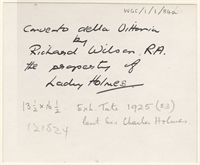 WGC/1/1/342
Convento della Vittoria
by
Richard Wilson RA.
the property of
Lady Holmes
13½ x 16½ Exh. Tate 1925 (53)
121824 lent Sir Charles Holmes.